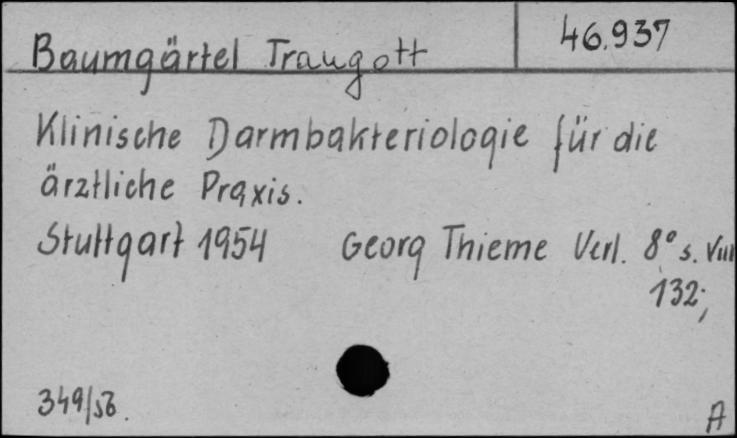 Baumgärtel Traugott 46.937
Klinische Darmbakteriologie für die
ärztliche Praxis.
Stuttgart 1954 Georg Thieme Verl. 8° s. VIII
132;
349/56.
A